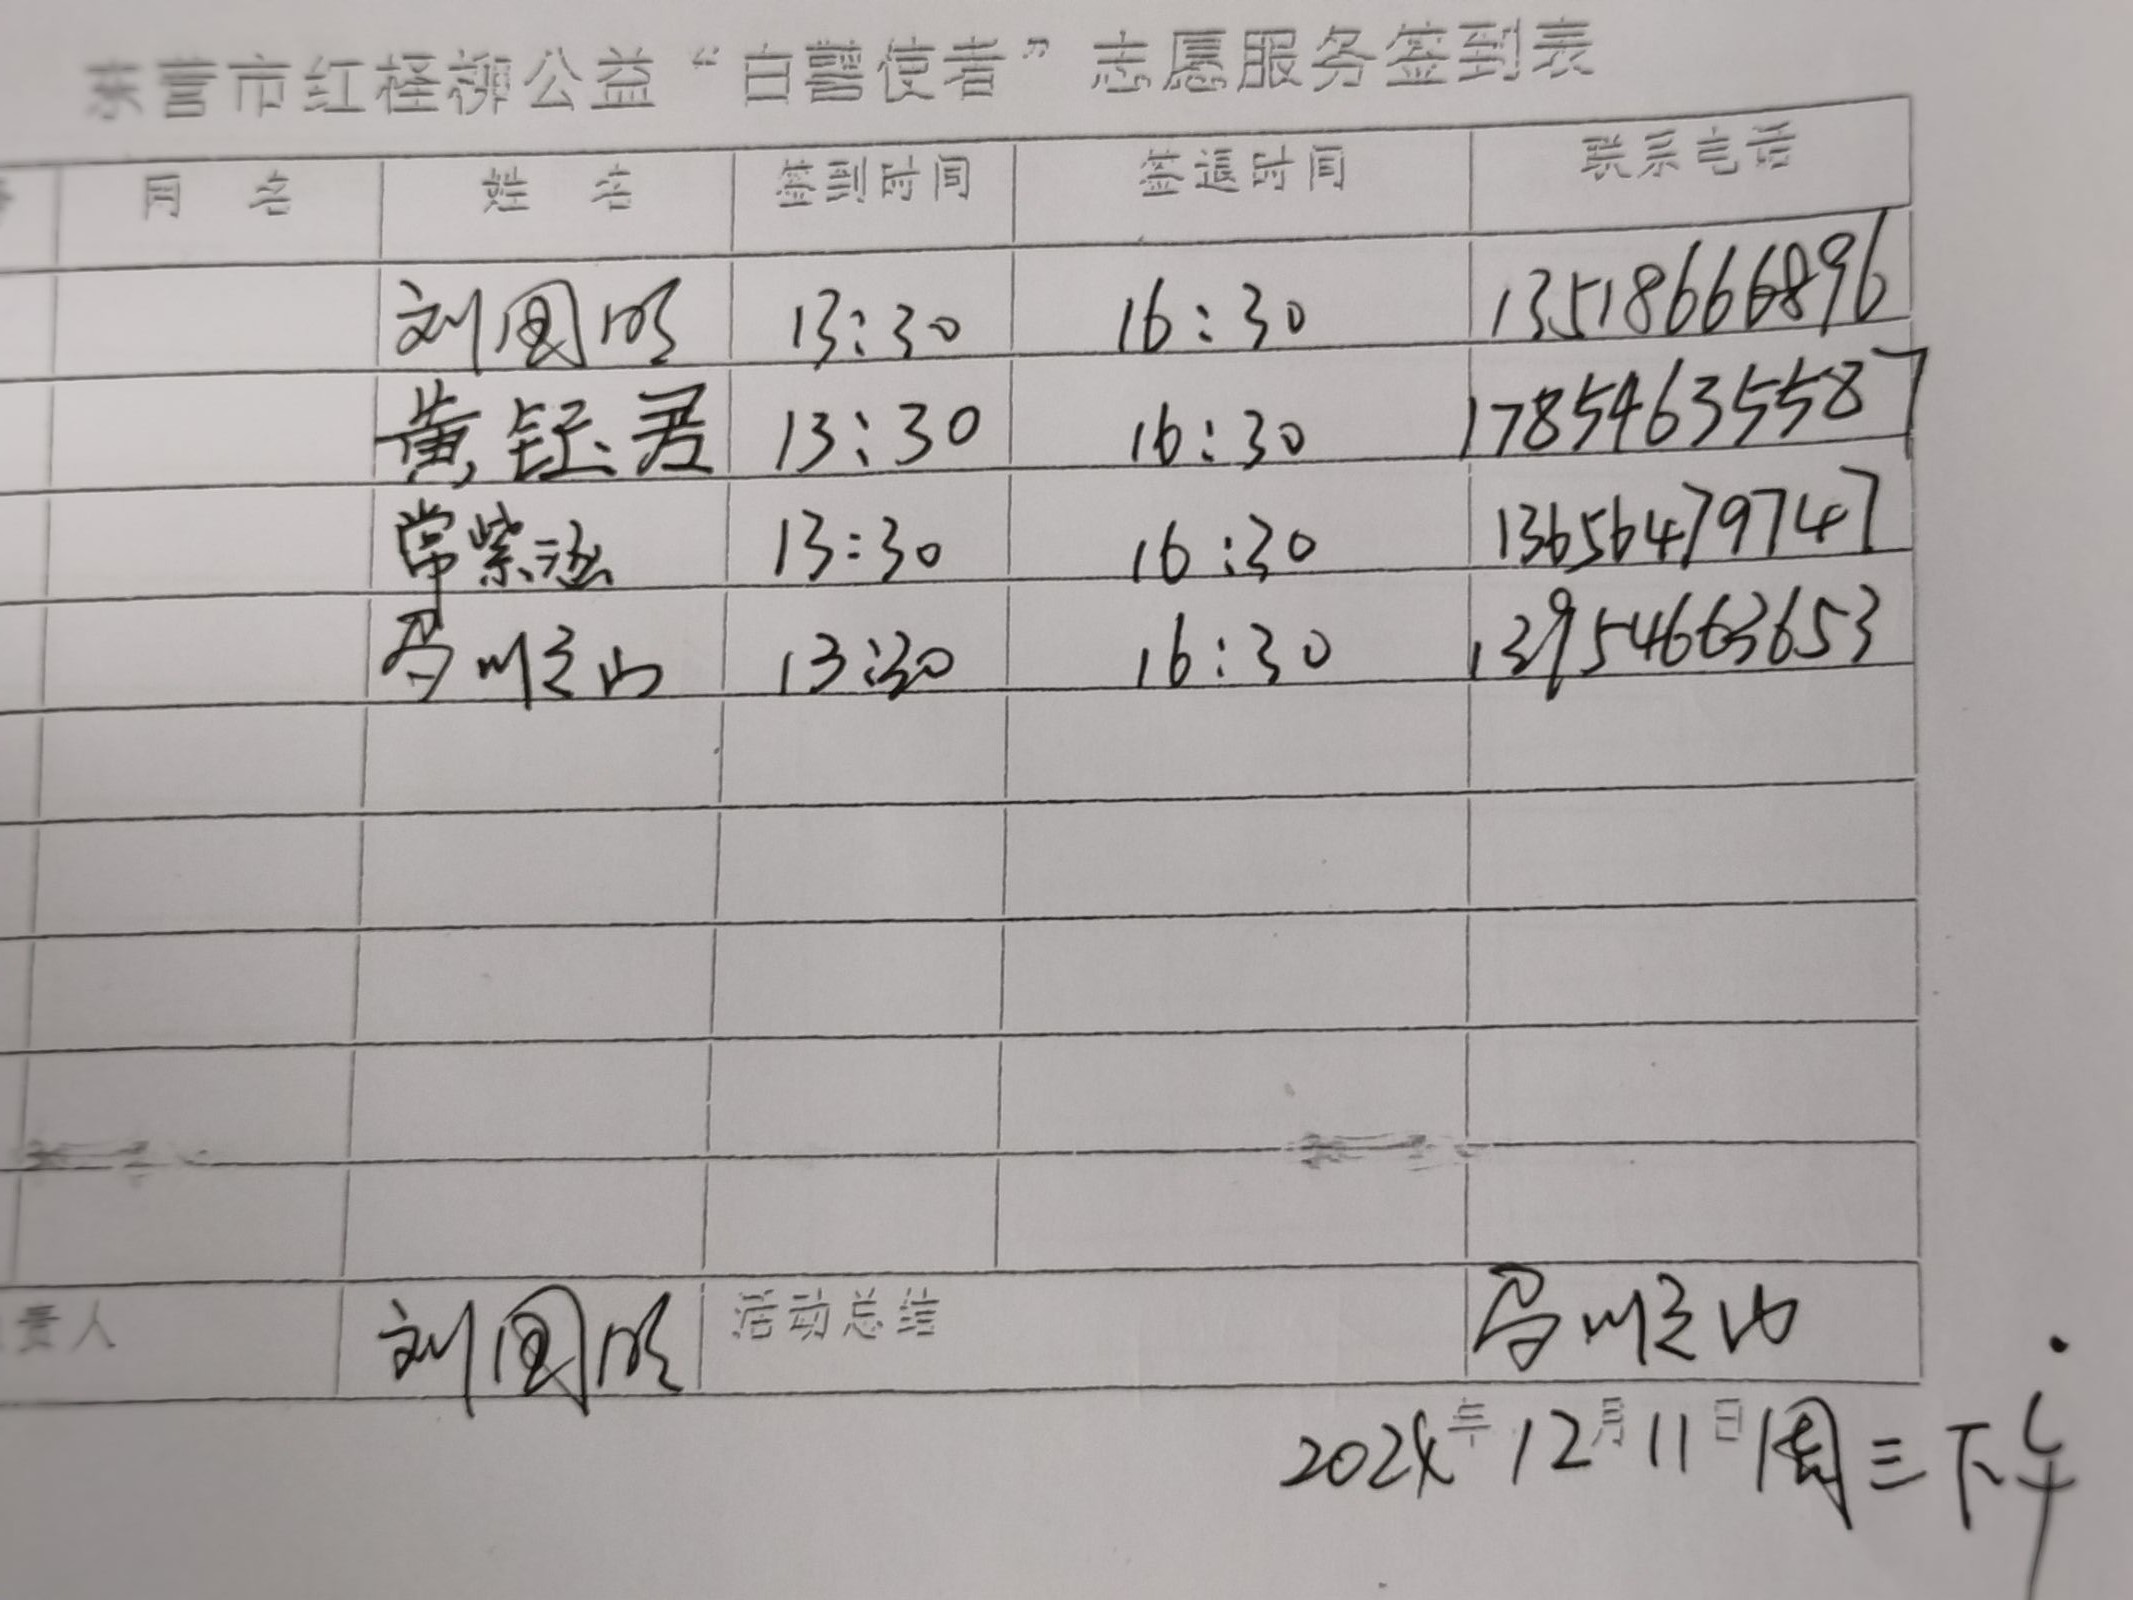 东营市红柽柳公益“白鹭使者”志愿服务签到表
网 名 姓 名 签到时间 签退时间 联系电话
刘国明 13:30 16:30 13518666896
黄钰君 13:30 16:30 17854635587
常紫涵 13:30 16:30 13656479747
马顺山 13:30 16:30 13954663653
责人 刘国明 活动总结 马顺山
2024年12月11日周三下午